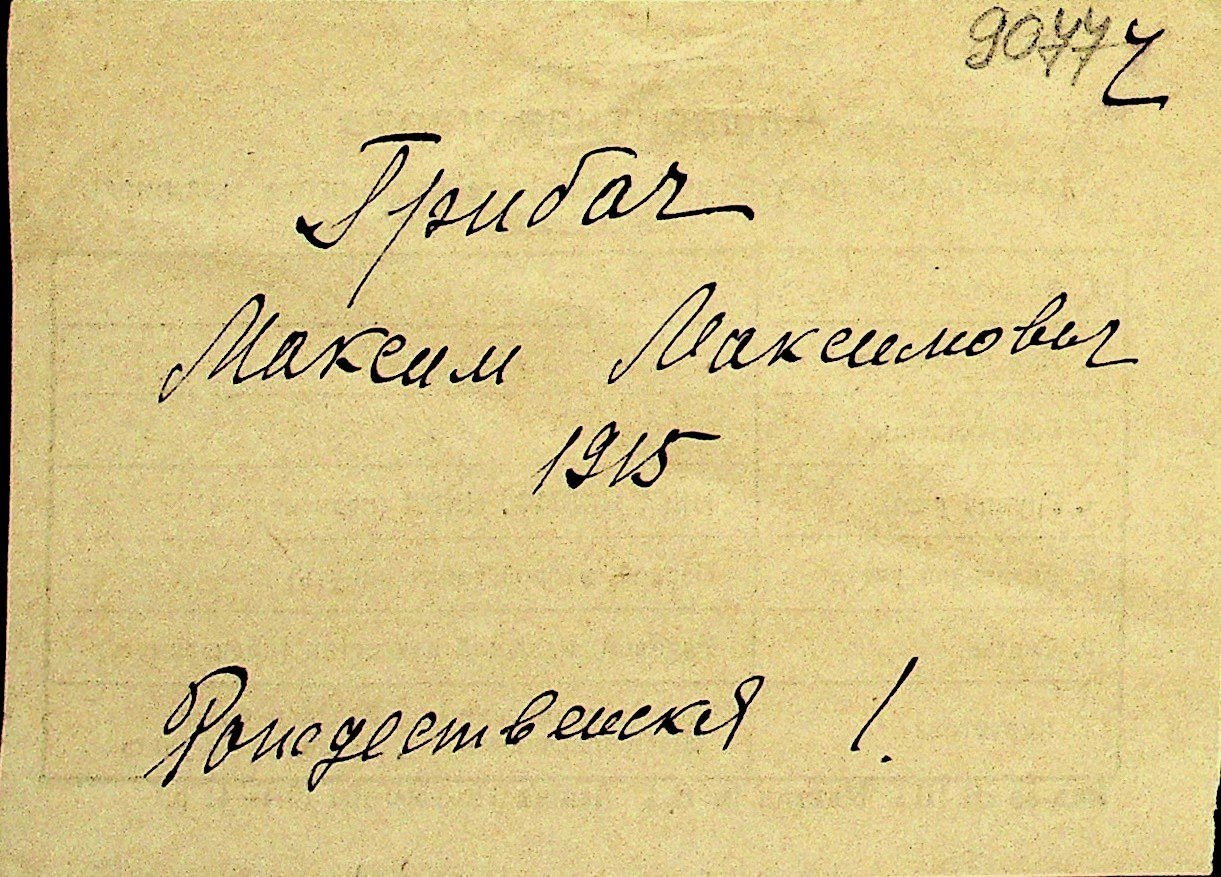 Грибач
Максим Максимович
1915
Рождественская !